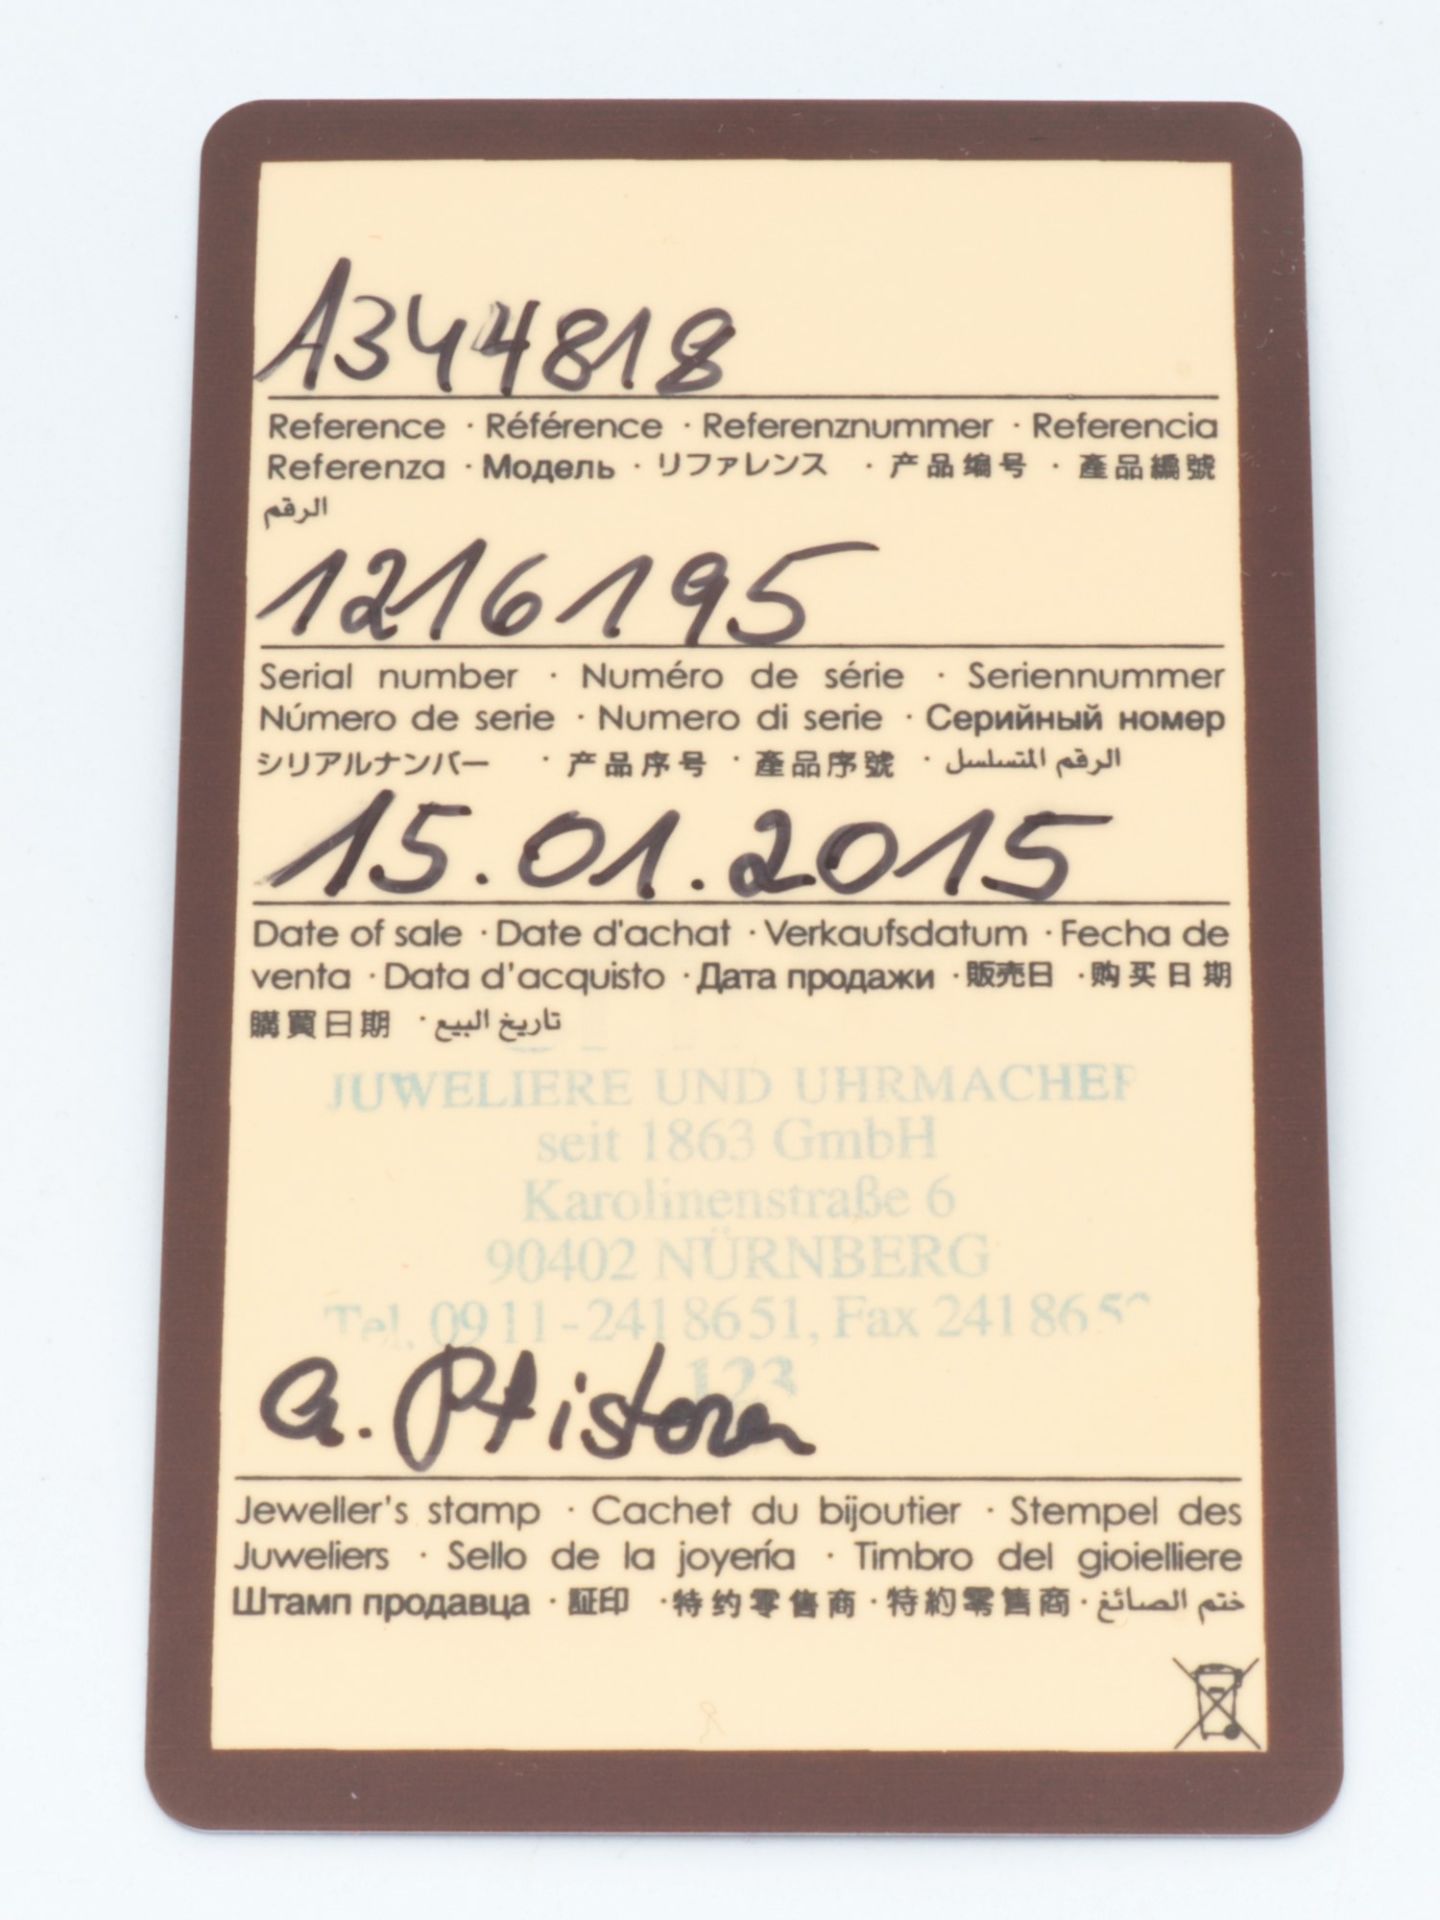 A344818
Reference · Référence · Referenznummer · Referencia
Referenza · Модель · リファレンス · 产品编号 · 產品編號
الرقم
1216195
Serial number · Numéro de série · Seriennummer
Número de serie · Numero di serie · Серийный номер
シリアルナンバー · 产品序号 · 產品序號 · الرقم المتسلسل
15.01.2015
Date of sale · Date d'achat · Verkaufsdatum · Fecha de
venta · Data d'acquisto · Дата продажи · 販売日 · 购买日期
購買日期 · تاريخ البيع
JUWELIERE UND UHRMACHER
seit 1863 GmbH
Karolinenstraße 6
90402 NÜRNBERG
Tel. 0911-2418651, Fax 241865
123
Jeweller's stamp · Cachet du bijoutier · Stempel des
Juweliers · Sello de la joyería · Timbro del gioielliere
Штамп продавца · 証印 · 特约零售商 · 特約零售商 · ختم الصائغ